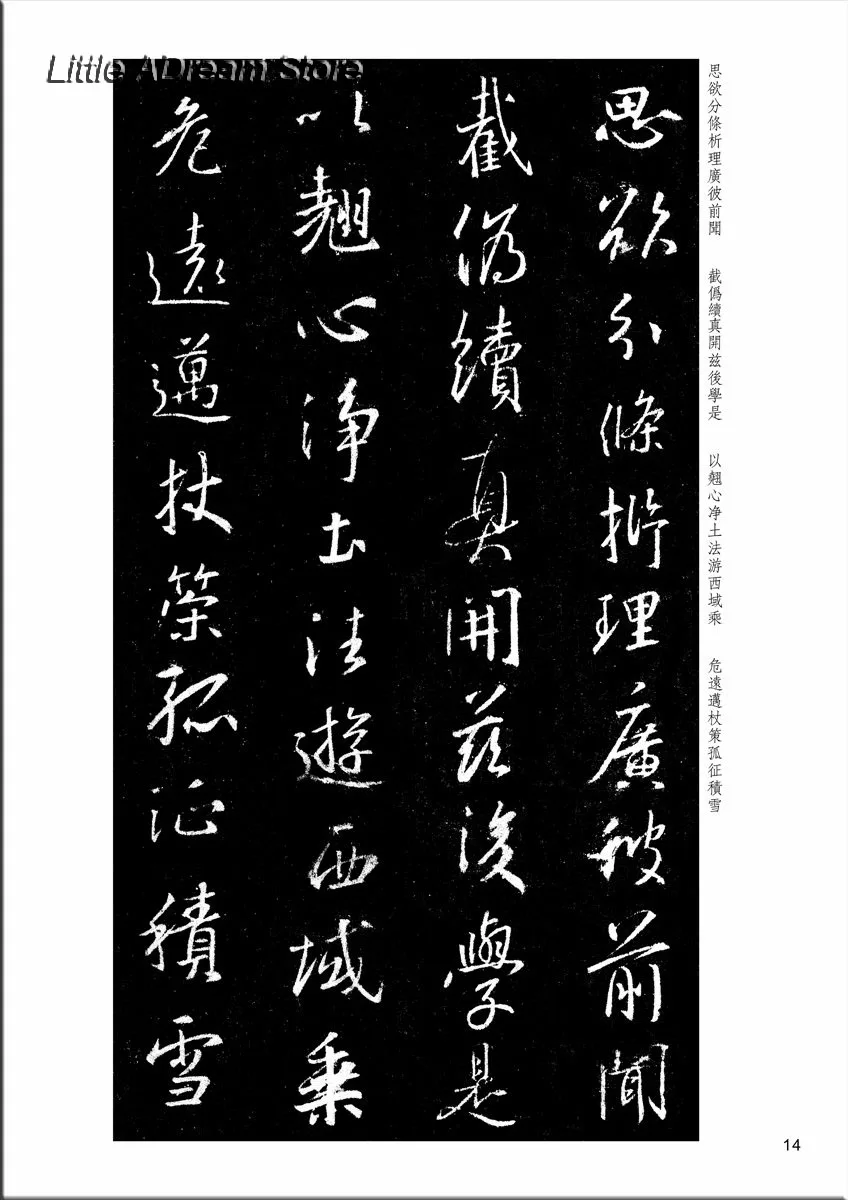 Little ADream Store
思欲分條析理廣彼前聞
截僞續真開茲後學是
以翹心净土法遊西域乘
危遠邁杖策孤征積雪
思欲分條析理廣彼前聞 截僞續真開兹後學是 以翹心净土法游西域乘 危遠邁杖策孤征積雪
14